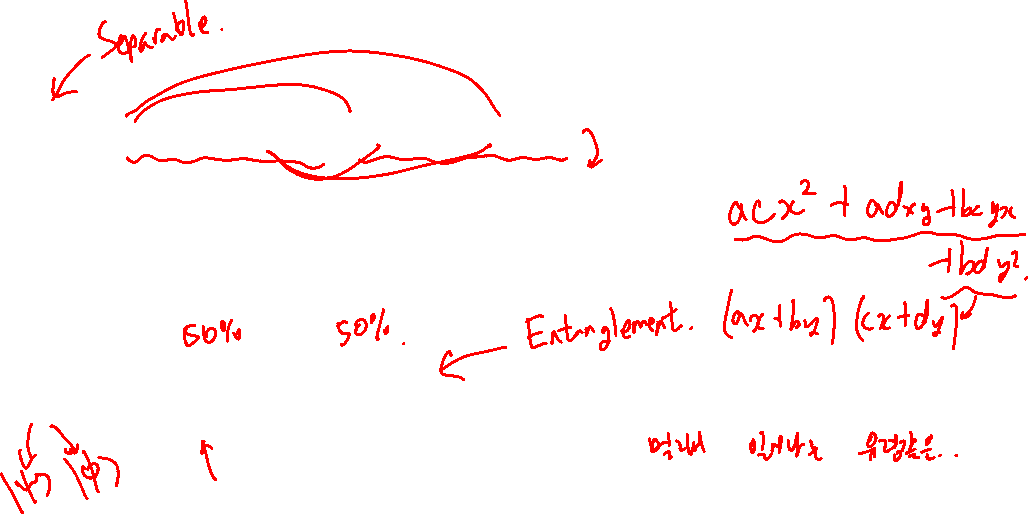 Separable.
acx² + adxy + bcyx
+ bdy².
50% 50%.
Entanglement. (ax+by) (cx+dy)
|ψ⟩ |φ⟩
멀리서 일어나는 유령같은..